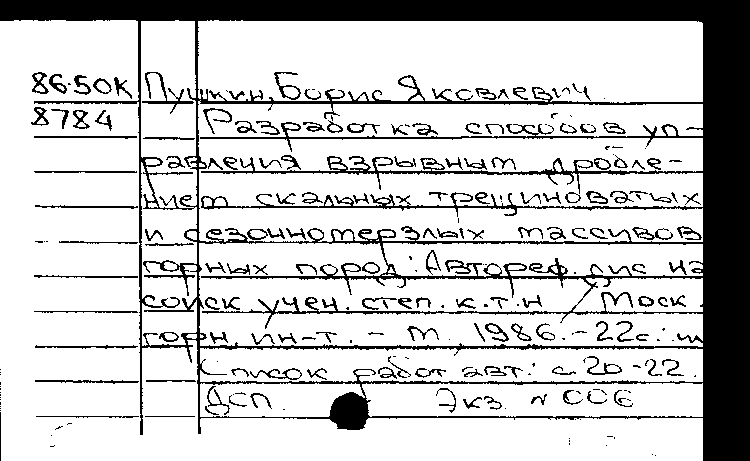 86-50К Пушкин, Борис Яковлевич
8784 Разработка способов уп-
равления взрывным дробле-
нием скальных трещиноватых
и сезонномерзлых массивов
горных пород: Автореф. дис на
соиск. учен. степ. к.т.н / Моск.
горн. ин-т. - М., 1986. - 22с.: и
Список работ авт.: с. 20-22.
ДСП. Экз N 006